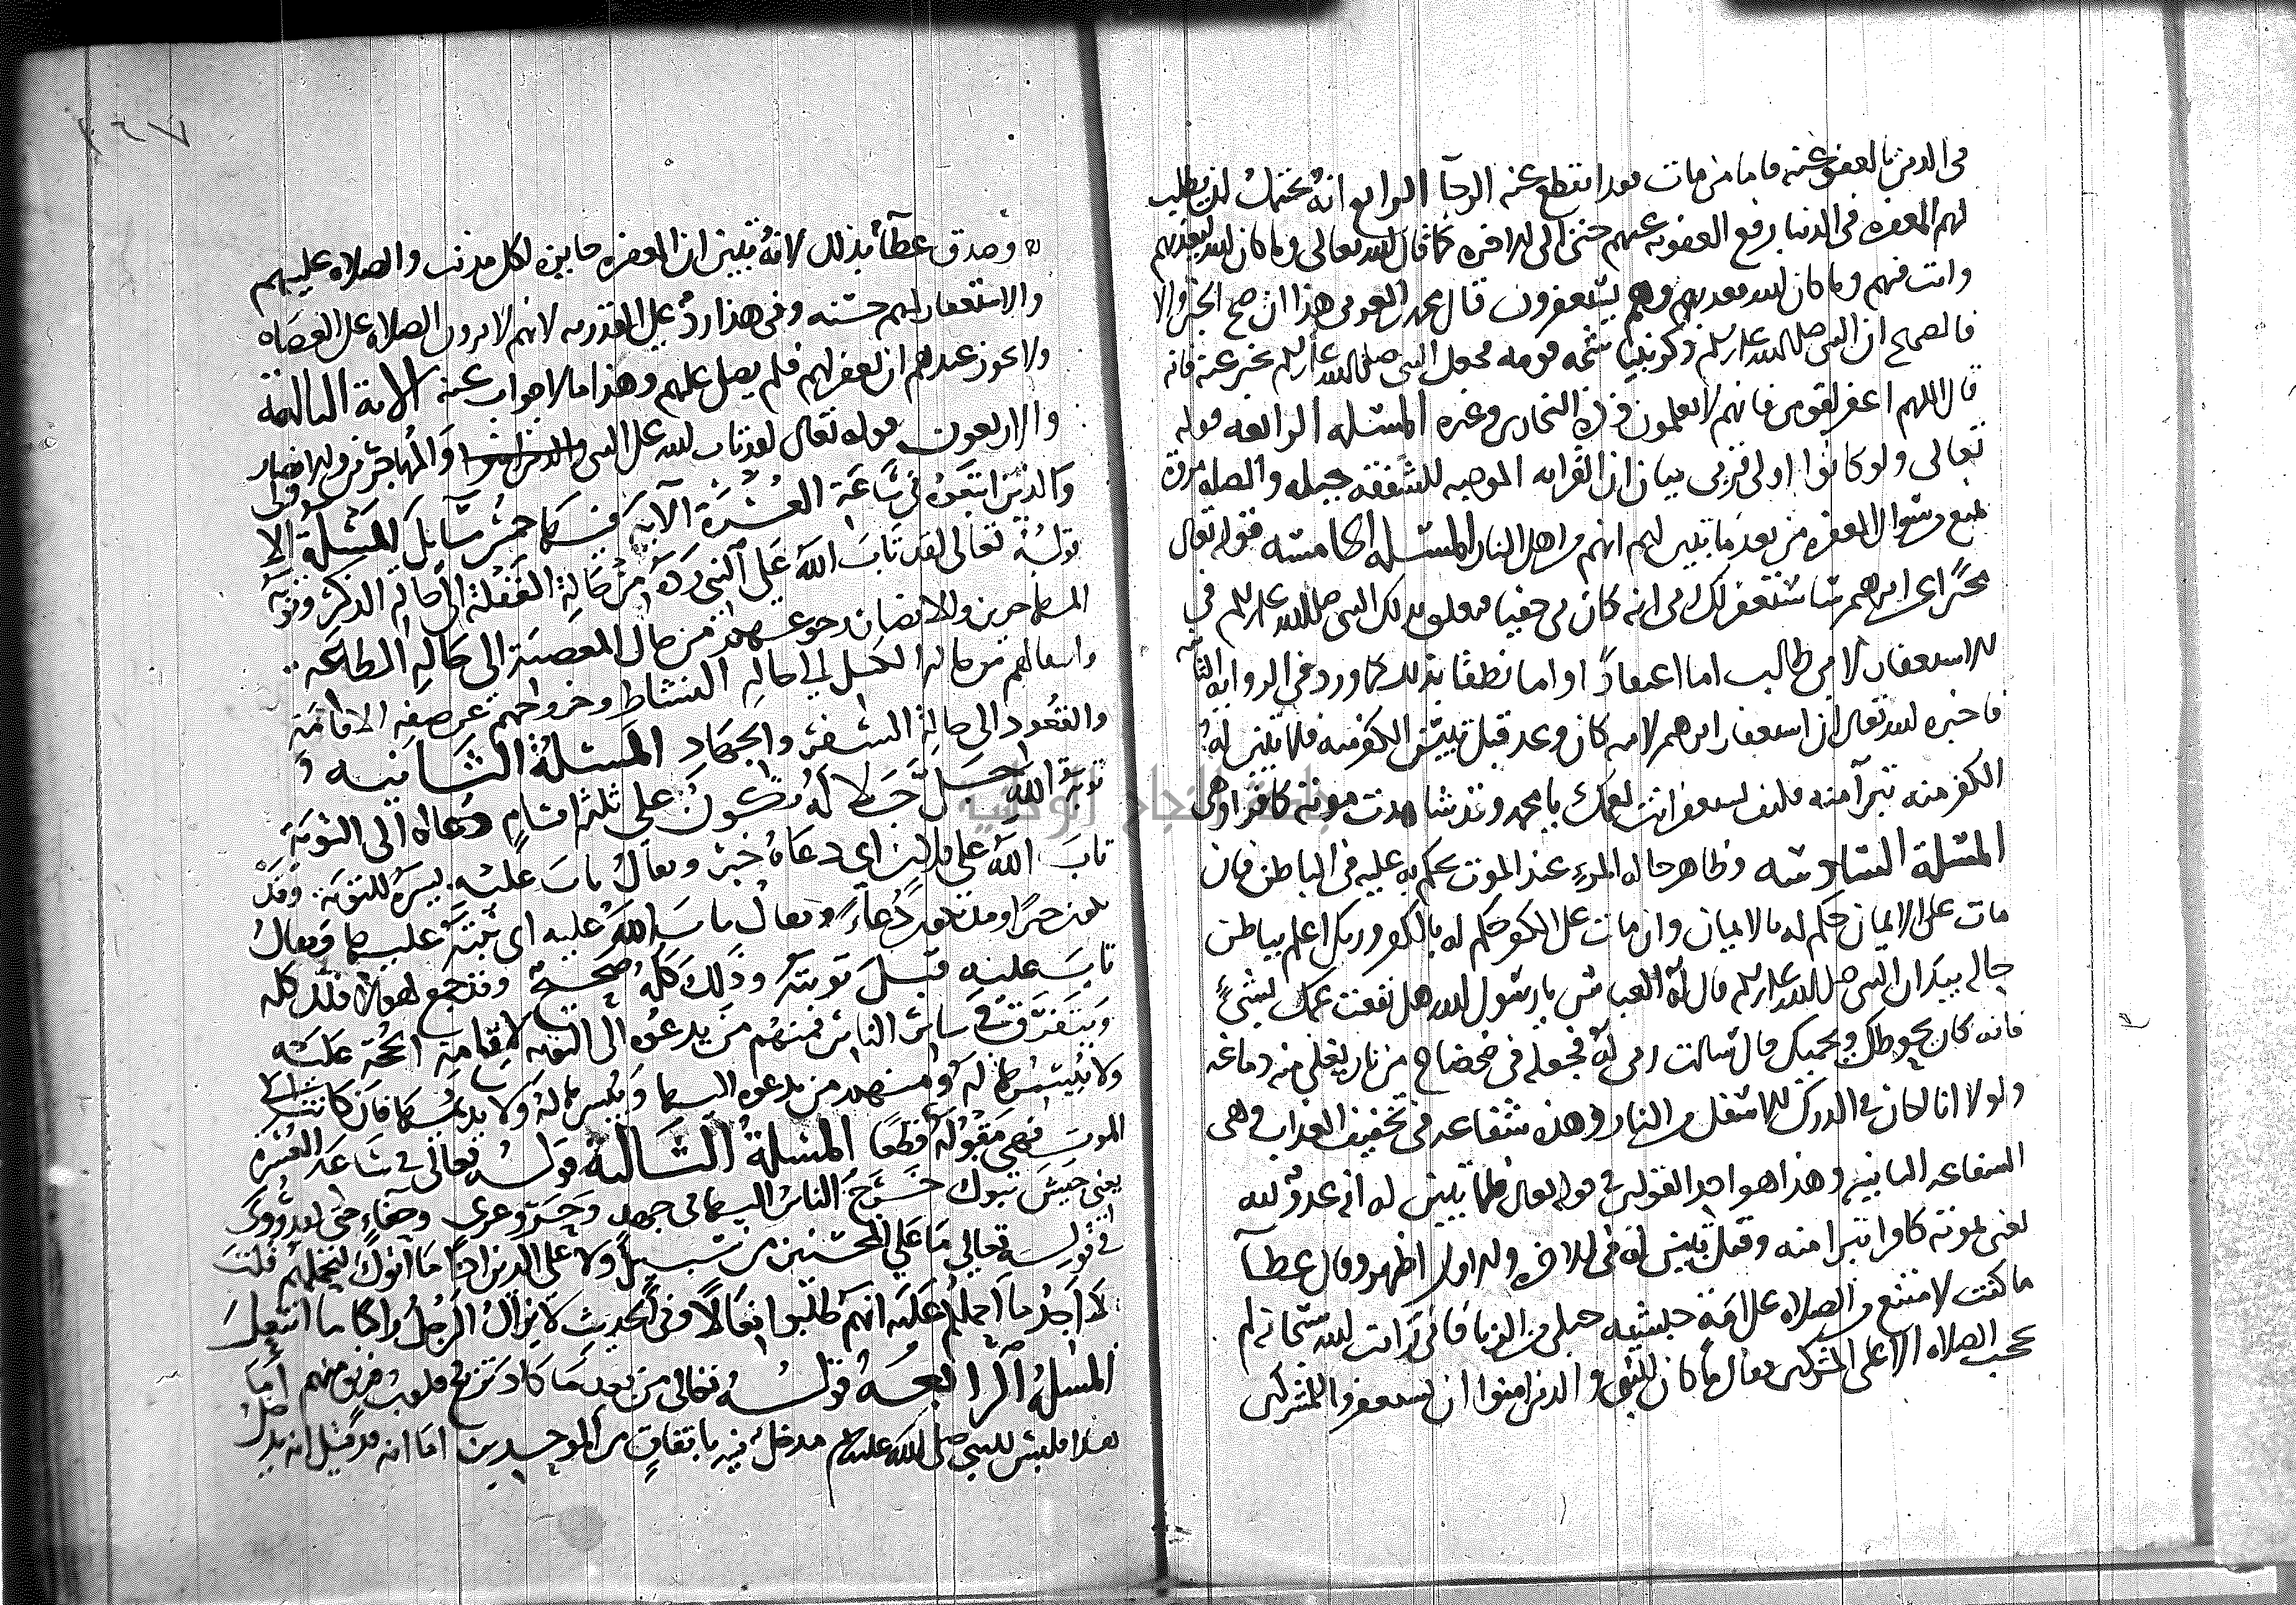 في الدين بالعفو عنه فاما من مات فقد انقطع عنه الرجآ الرابع انه يحتمل ان يطلب
لهم المغفره في الدنيا برفع العقوبه عنهم حتى الى الاخره كما قال الله تعالى وما كان الله ليعذبهم
وانت فيهم وما كان الله معذبهم وهم يستغفرون قال محمد العربي هذا ان صح الخبر والا
فالصحيح ان النبي صلى الله عليه وسلم ذكر نبيا شجه قومه فجعل النبي صلى الله عليه وسلم يخبر عنه فانه
قال اللهم اغفر لقومي فانهم لا يعلمون وفي البخاري وغيره المسئله الرابعه قوله
تعالى ولو كانوا اولي قربى بيان ان القرابه الموجبه للشفقه جبله والصله مروة
تمنع من سؤال المغفره من بعد ما تبين لهم انهم من اهل النار المسئله الخامسه قوله تعالى
مخبرا عن ابرهيم ساستغفر لك ربي انه كان بي حفيا فتعلق بذلك النبي صلى الله عليه وسلم في
الاستغفار لابي طالب اما اعتقادا او اما نطقا بذلك كما ورد في الروايه الثانيه
فاخبره الله تعالى ان استغفار ابرهيم لابيه كان وعد قبل تبين الكفر منه فلما تبين له
الكفر منه تبرآ منه فكيف تستغفر انت لعمك يا محمد وقد شاهدت موته كافرا وهي
المسئلة السادسه وظاهر حاله المرء عند الموت يحكم به عليه في الباطن فان
مات على الايمان حكم له بالايمان وان مات على الكفر حكم له بالكفر وربك اعلم بباطن
حاله بيد ان النبي صلى الله عليه وسلم قال له العباس يا رسول الله هل نفعت عمك بشيء
فانه كان يحوطك ويحميك قال سالت ربي له فجعله في ضحضاح من نار يغلي منه دماغه
ولولا انا لكان في الدرك الاسفل من النار وهذه شفاعه في تخفيف العذاب وهي
الشفاعه الثانيه وهذا هو احد القولين في قوله تعالى فلما تبين له انه عدو لله
يعني بموته كافرا تبرا منه وقيل تبين له في الاخره والاول اظهر وقال عطآ
ما كنت لامتنع من الصلاه على امة حبشيه حبلى من الزنا فاني رايت الله سبحانه لم
يحجب الصلاه الا على المشركين فقال ما كان للنبي والذين امنوا ان يستغفروا للمشركين
وصدق عطآ بذلك لانه تبين ان المغفره جايزه لكل مذنب والصلاه عليهم
والاستغفار لهم حسنه وفي هذا رد على القدريه لانهم لا يرون الصلاه على العصاه
ولا يجوز عندهم ان يغفر لهم فلم يصل عليهم وهذا ما لا جواب عنه الاية الثالثة
والاربعون قوله تعالى لقد تاب الله على النبي والمهاجرين والانصار
والذين اتبعوه في ساعة العسرة الآية فيها خمس مسايل المسئلة الاولى
قوله تعالى لقد تاب الله على النبي رده من حالة الغفلة الى حالة الذكر وتوبة
المهاجرين والانصار رجوعهم من حال المعصية الى حالة الطاعه
وانتقالهم من حالة الكسل الى حالة النشاط وخروجهم عن صفة الاقامة
والقعود الى حالة السفر والجهاد المسئلة الثانيه و
توبة الله تكون على ثلثة اقسام دعاه الى التوبة
تاب الله على فلان اي دعاه خبر ويقال تاب عليه يسره للتوبة وقد
يكون خبرا وقد يكون دعاء ويقال تاب الله عليه اي ثبته عليها ويقال
تاب عليه قبل توبته وذلك كله صحيح وقد جمع لهولاء ذلك كله
ويتفرق في ساير الناس فمنهم من يدعوه الى التوبة لاقامة الحجة عليه
ولا ييسرها له ومنهم من يدعوه اليها وييسرها له ولا يديمها فان كانت الى
الموت فهي مقبولة قطعا المسئلة الثالثة قوله تعالى في ساعة العسرة
يعني جيش تبوك خرج الناس اليها في جهد وحر وعري وحفاء حتى لقد روي
في قوله تعالى ما على المحسنين من سبيل ولا على الذين اذا ما اتوك لتحملهم قلت
لا اجد ما احملكم عليه انهم طلبوا نعالا وفي الحديث لا يزال الرجل راكبا ما انتعل
المسئلة الرابعه قوله تعالى من بعد ما كاد تزيغ قلوب فريق منهم اما
هذا فليس للنبي صلى الله عليه وسلم مدخل فيه باتفاق من الموحدين اما انه قد قيل انه يدخل